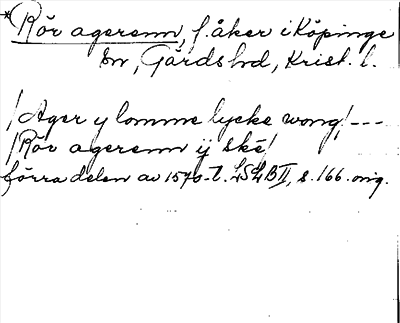 *Rör agerenn, f. åker i Köpinge
sn, Gärds hd, Krist. l.
/Ager y lomme lycke wong/---
/Rör agerenn ij ské/
förra delen av 1570-t. LSLB II, s. 166. orig.